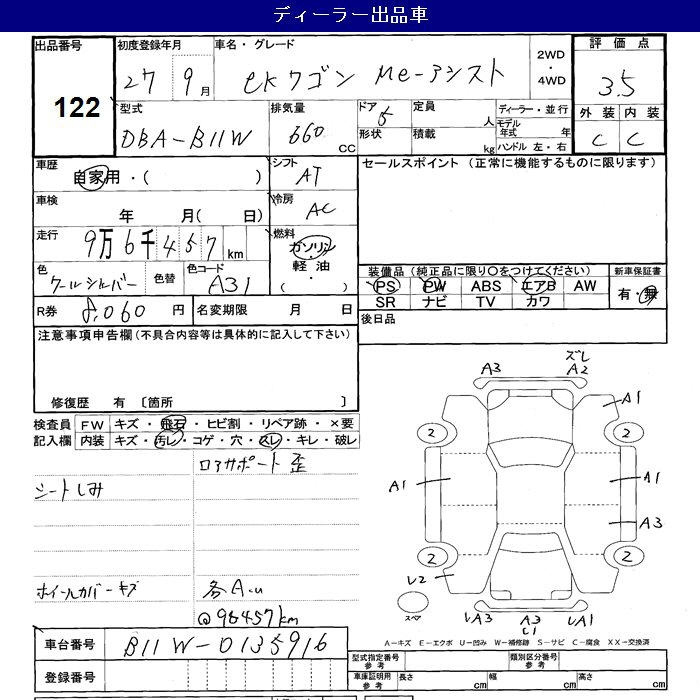 ディーラー出品車
出品番号 初度登録年月 車名・グレード 2WD・4WD 評価点
122 27 9月 eKワゴン Me-アシスト 3.5
型式 排気量 ドア 定員 ディーラー・並行 外装 内装
DBA-B11W 660 CC 5 人 モデル年式 年 C C
形状 積載 kg ハンドル 左・右
車歴 自家用・( ) シフト AT セールスポイント (正常に機能するものに限ります)
車検 年 月( 日) 冷房 AC
走行 9万6千457km 燃料 ガソリン・軽油・( )
色 クールシルバー 色替 色コード A31 装備品(純正品に限り〇をつけてください) 新車保証書
PS PW ABS エアB AW 有・無
SR ナビ TV カワ
R券 8,060円 名変期限 月 日 後日品
注意事項申告欄(不具合内容等は具体的に記入して下さい)
修復歴 有 〔箇所 〕
検査員記入欄 FW キズ・飛石・ヒビ割・リペア跡・×要
内装 キズ・汚レ・コゲ・穴・スレ・キレ・破レ
コアサポート歪
シートしみ
ホイールカバーキズ 各A.u
@96457km
A3 ズレ A2
A1
2 2
A1 A1
A3
2 2
U2
スペア
UA3 A3 U1 UA1
A-キズ E-エクボ U-凹み W-補修跡 S-サビ C-腐食 XX-交換済
車台番号 B11W-0135916
登録番号
型式指定番号 参考 類別区分番号 参考
車庫証明用 参考 長さ cm 幅 cm 高さ cm